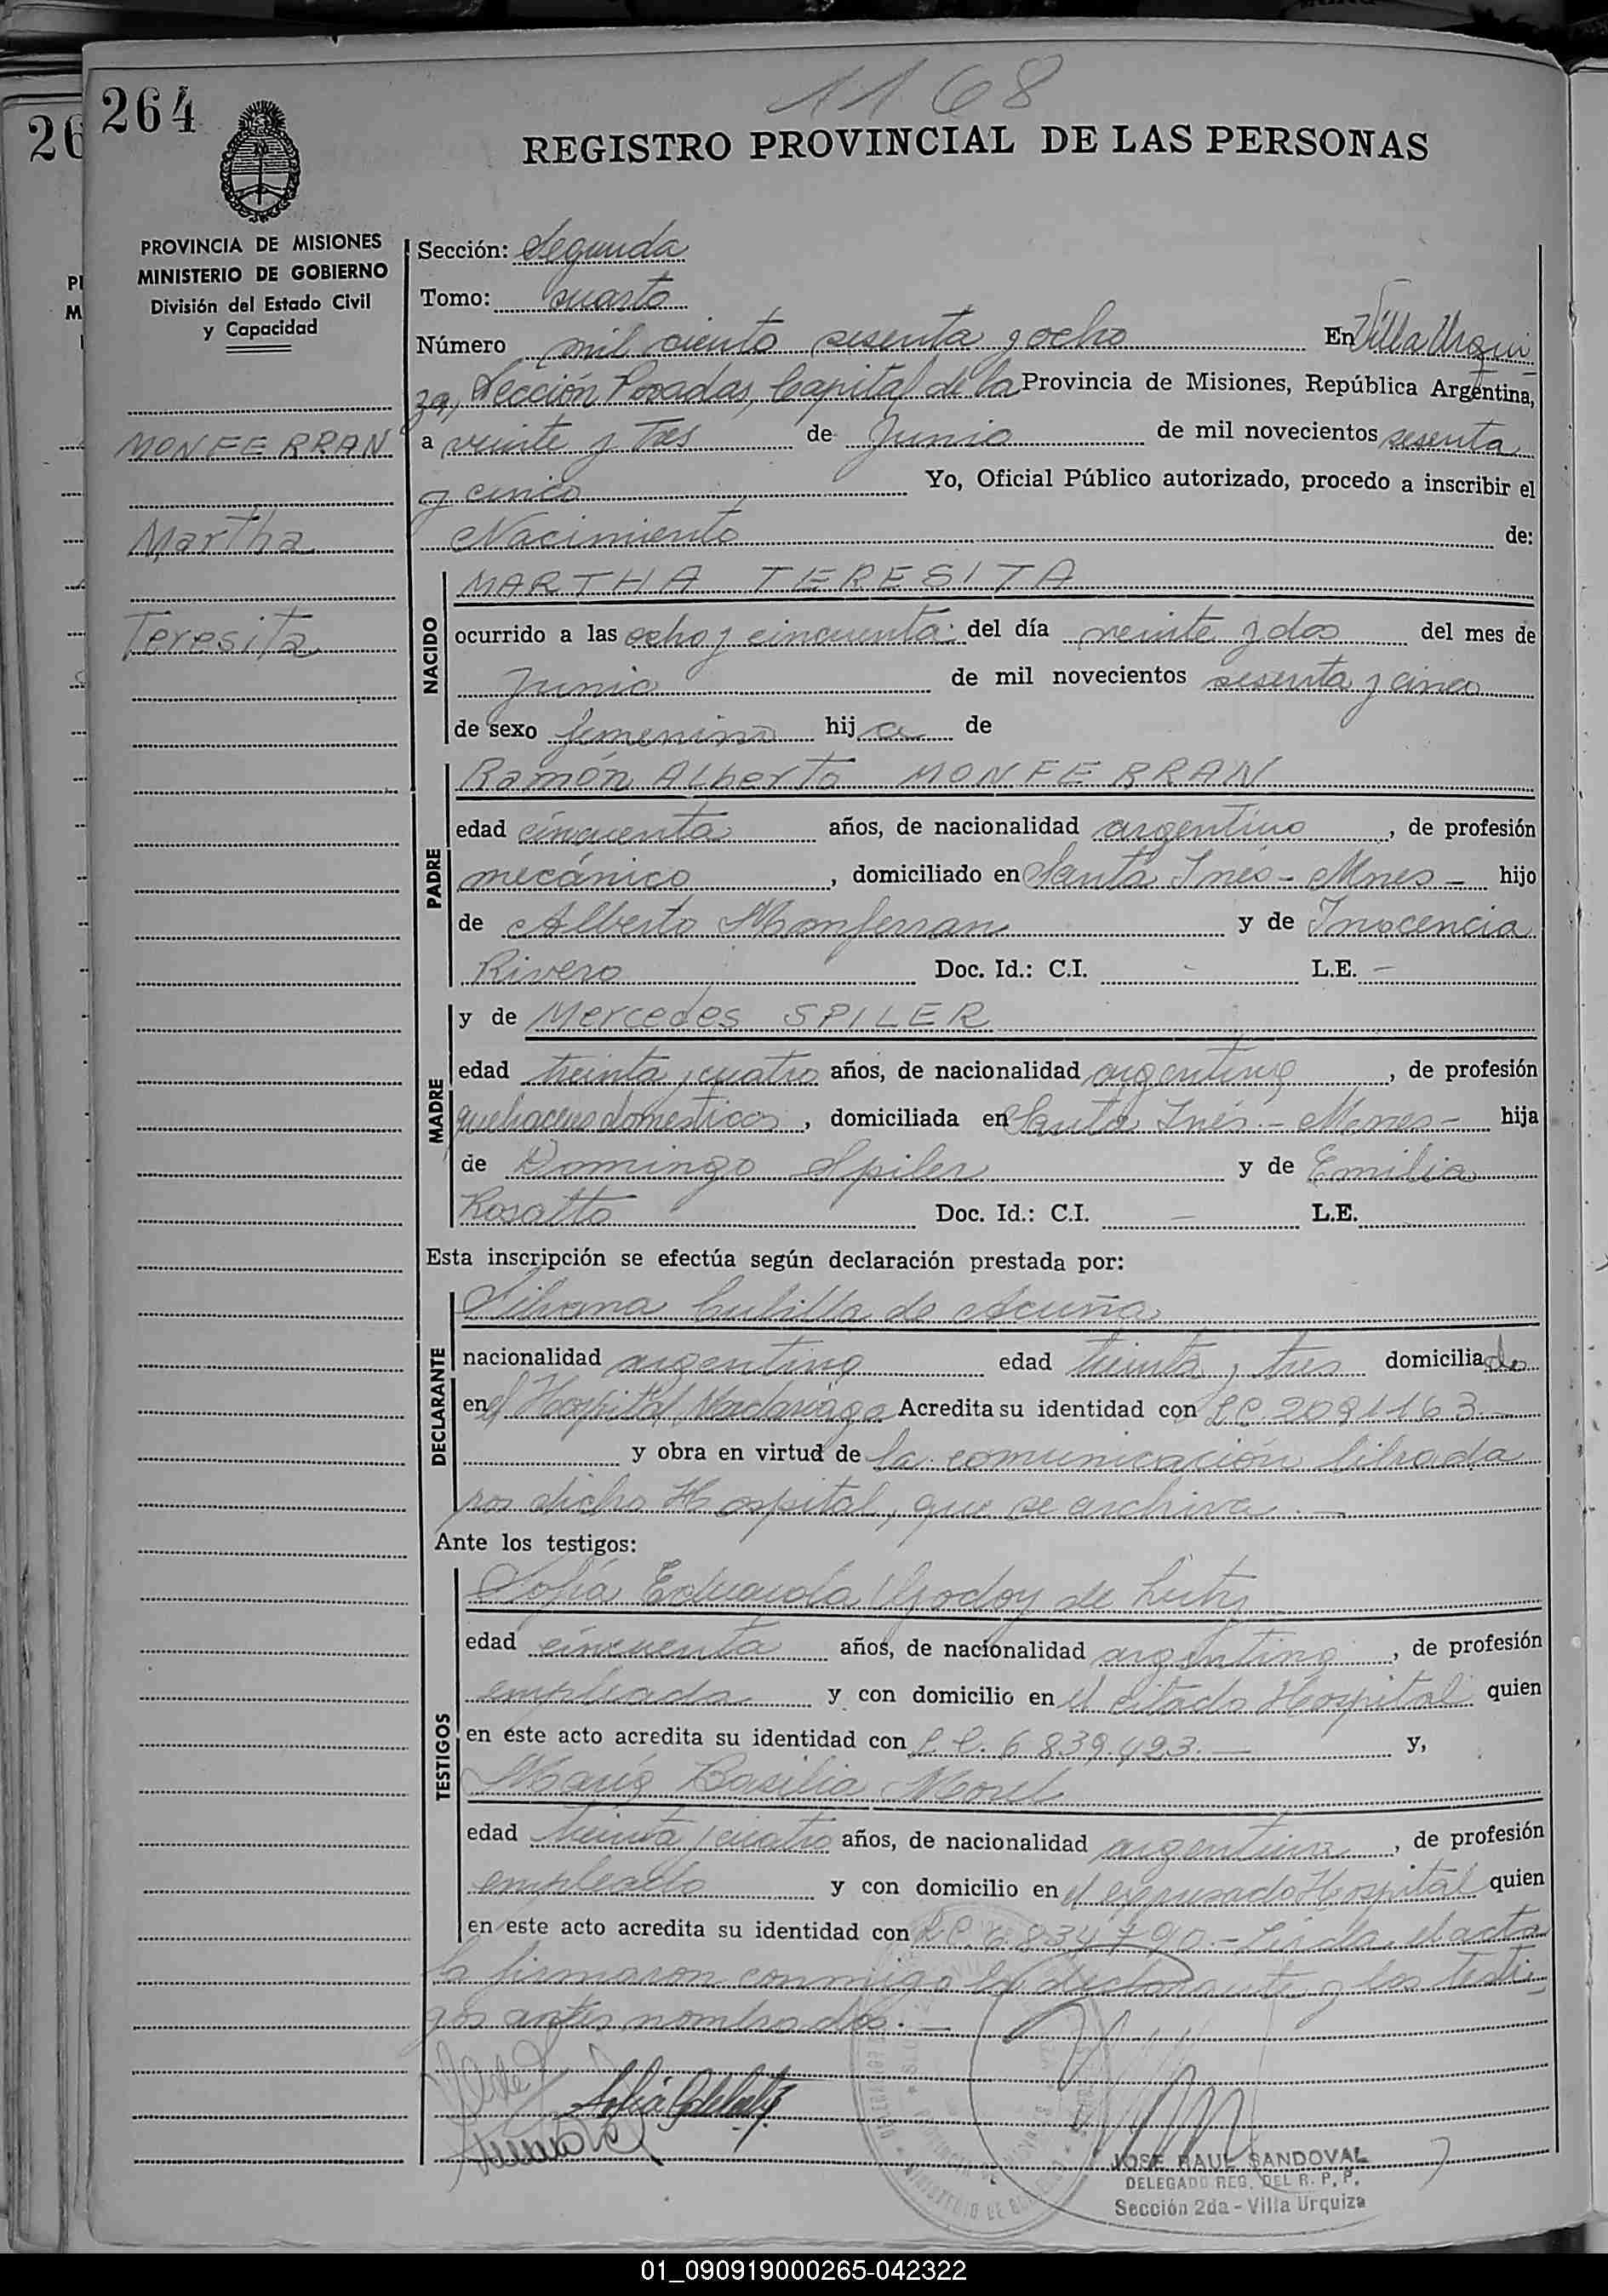 1168
264
26
REGISTRO PROVINCIAL DE LAS PERSONAS
PROVINCIA DE MISIONES
MINISTERIO DE GOBIERNO
División del Estado Civil
y Capacidad
MONFERRAN
Martha
Teresita
Sección: Segunda
Tomo: cuarto
Número mil ciento sesenta y ocho En Villa Urqui
za, Sección Posadas, Capital de la Provincia de Misiones, República Argentina,
a veinte y Tres de Junio de mil novecientos sesenta
y cinco Yo, Oficial Público autorizado, procedo a inscribir el
Nacimiento de:
NACIDO
MARTHA TERESITA
ocurrido a las ocho y cincuenta del día veinte y dos del mes de
Junio de mil novecientos sesenta y cinco
de sexo femenino hij a de
PADRE
Ramón Alberto MONFERRAN
edad cincuenta años, de nacionalidad argentino, de profesión
mecánico, domiciliado en Santa Inés - Mnes - hijo
de Alberto Monferran y de Inocencia
Rivero Doc. Id.: C.I. - L.E. -
MADRE
y de Mercedes SPILER
edad treinta y cuatro años, de nacionalidad argentina, de profesión
quehaceres domesticos, domiciliada en Santa Inés - Mnes - hija
de Domingo Spiler y de Emilia
Rosatto Doc. Id.: C.I. - L.E.
Esta inscripción se efectúa según declaración prestada por:
DECLARANTE
Silvana Cubilla de Acuña
nacionalidad argentina edad treinta y tres domiciliada
en el Hospital Madariaga Acredita su identidad con LC. 2091163 -
y obra en virtud de la comunicación librada
por dicho Hospital, que se archiva. -
Ante los testigos:
TESTIGOS
Sofía Eduarda Godoy de
edad cincuenta años, de nacionalidad argentina, de profesión
empleada y con domicilio en el citado Hospital quien
en este acto acredita su identidad con L.C. 6.839.423. - y,
María Basilia Morel
edad treinta y cuatro años, de nacionalidad argentina, de profesión
empleada y con domicilio en el expresado Hospital quien
en este acto acredita su identidad con L.C. 6.834.790. - Leida el acta
la firmaron conmigo la declarante y los testi-
gos antes nombrados. -
JOSE RAUL SANDOVAL
DELEGADO REG. DEL R. P. P.
Sección 2da - Villa Urquiza
01_090919000265-042322